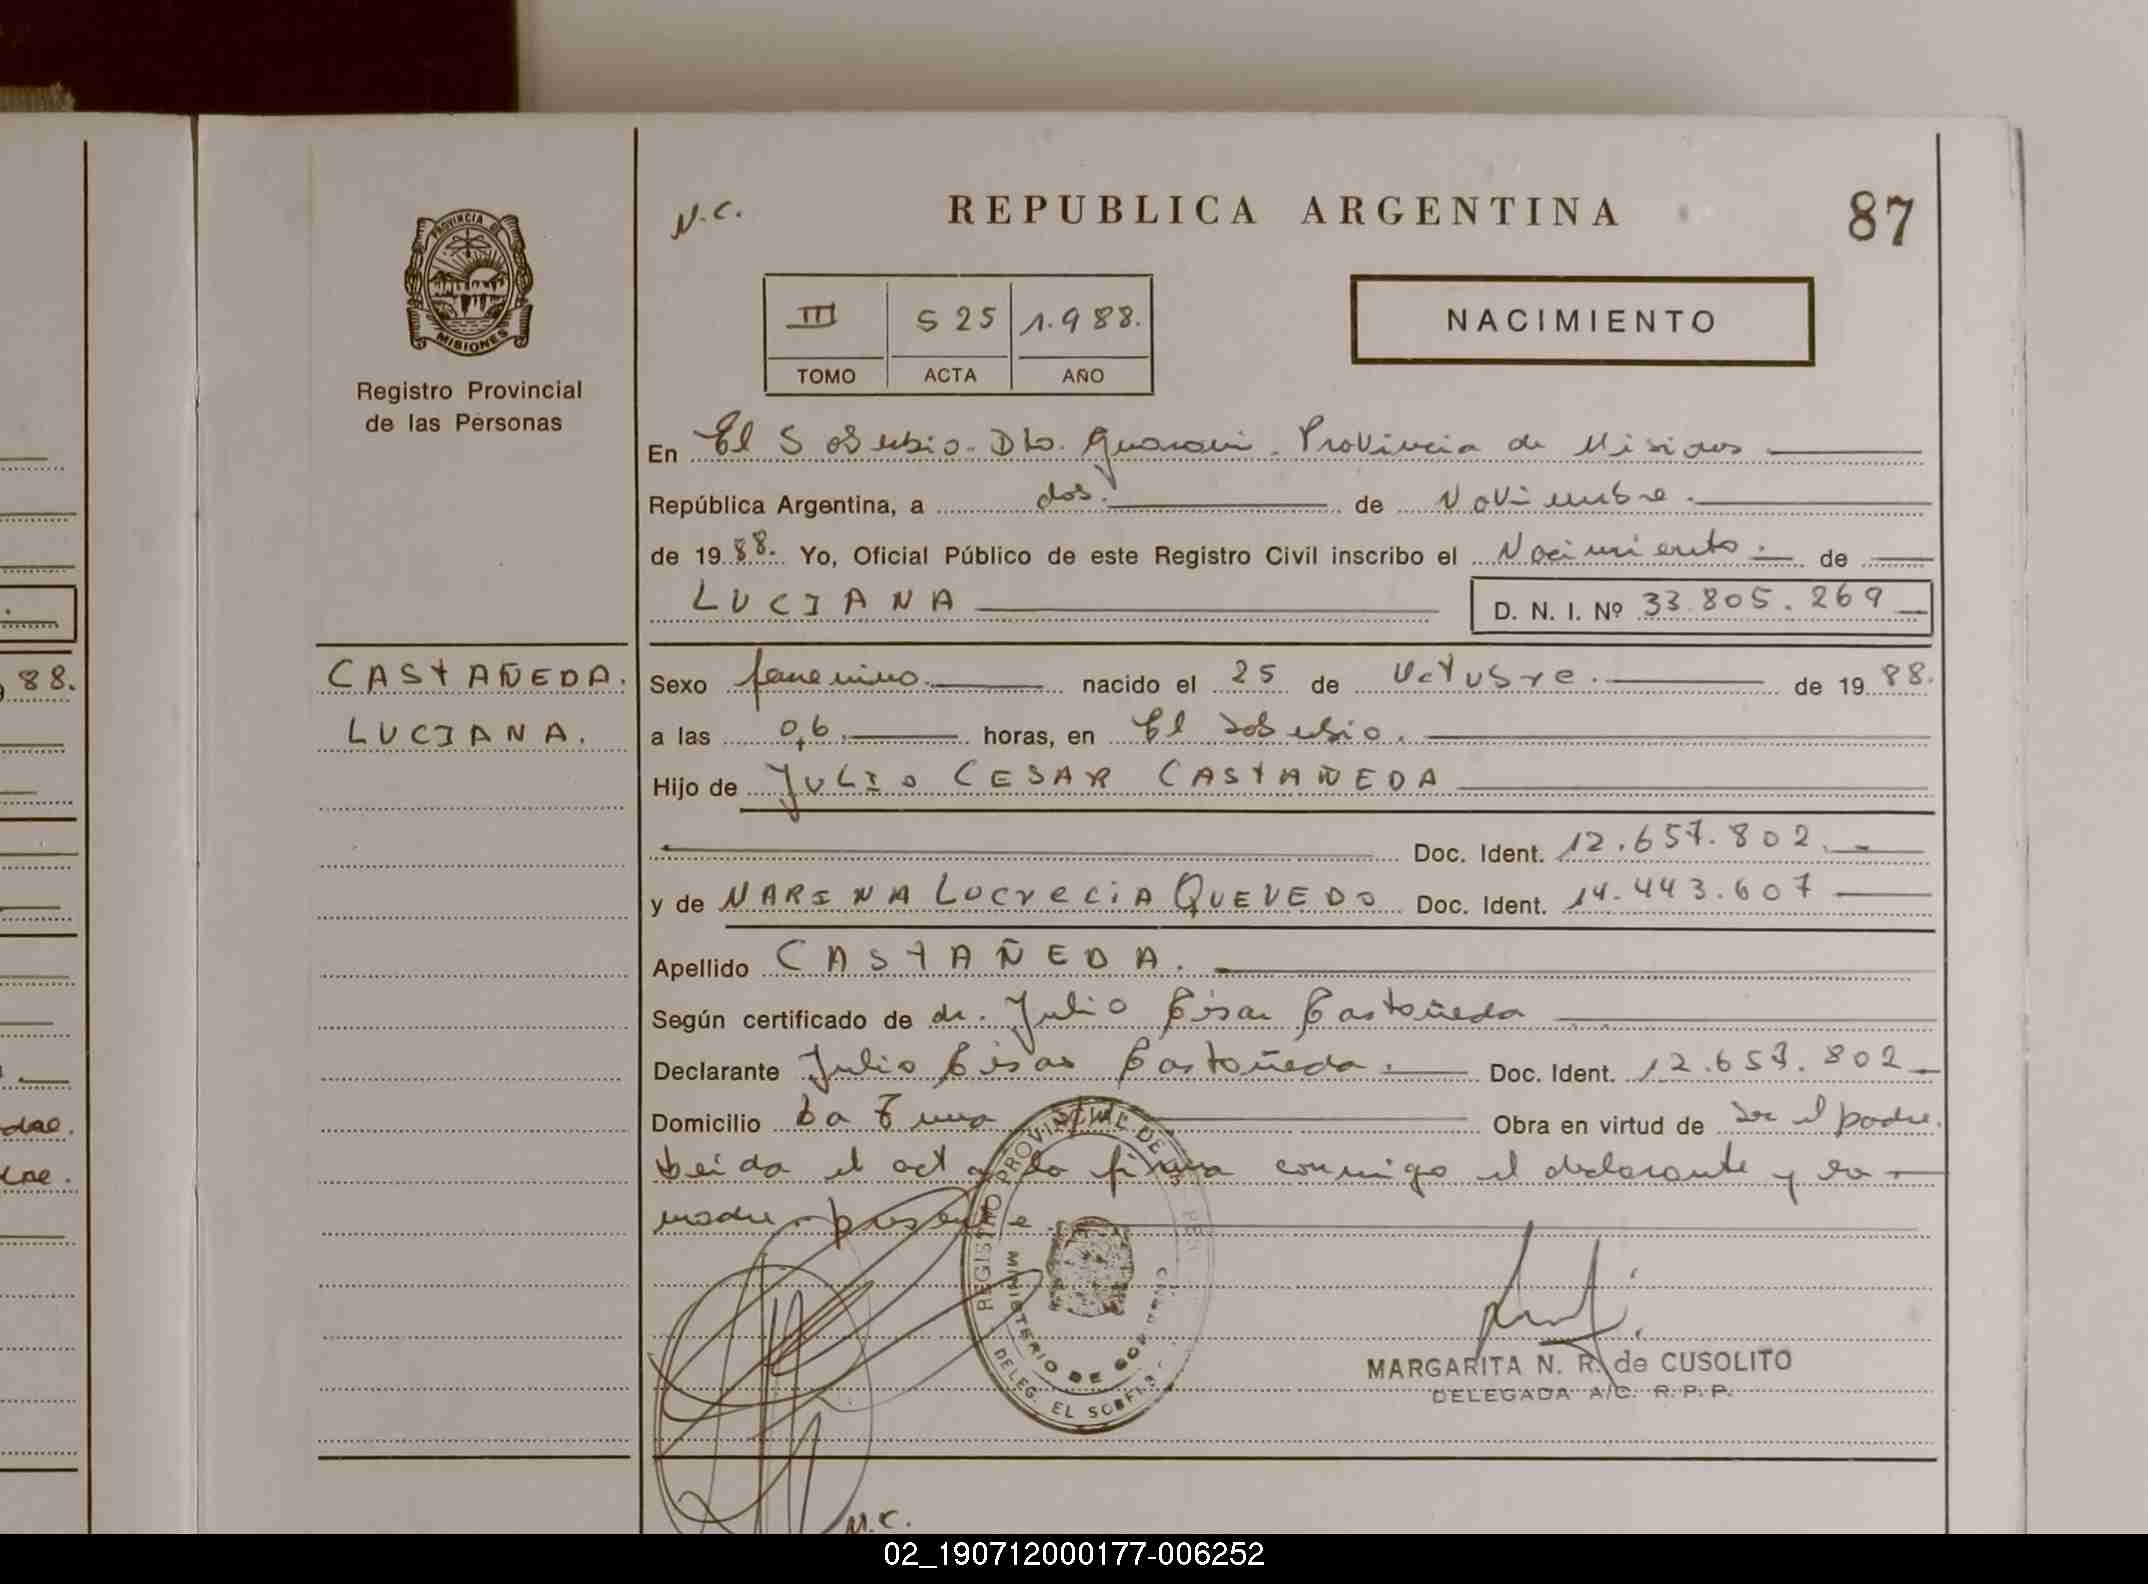 N.C.
REPUBLICA ARGENTINA
87
PROVINCIA DE
MISIONES
Registro Provincial
de las Personas
III 525 1.988.
TOMO ACTA AÑO
NACIMIENTO
En El Soberbio. Dto. Guarani. Provincia de Misiones
República Argentina, a dos. de Noviembre.
de 1988. Yo, Oficial Público de este Registro Civil inscribo el Nacimiento. de
LUCIANA
D. N. I. Nº 33.805.269
CASTAÑEDA.
LUCIANA.
Sexo femenino. nacido el 25 de Octubre. de 1988.
a las 06. horas, en El Soberbio.
Hijo de JULIO CESAR CASTAÑEDA
Doc. Ident. 12.657.802.
y de MARINA LUCRECIA QUEVEDO Doc. Ident. 14.443.607
Apellido CASTAÑEDA.
Según certificado de dr. Julio César Castañeda
Declarante Julio César Castañeda. Doc. Ident. 12.657.802
Domicilio Obra en virtud de ser el padre.
Leida el acta la firma conmigo el declarante y la
madre presente.
REGISTRO PROVINCIAL DE PER
MINISTERIO DE GOBIERNO
DELEG. EL SOBERB
MARGARITA N. R. de CUSOLITO
DELEGADA A/C. R. P. P.
M.C.
88.
02_190712000177-006252